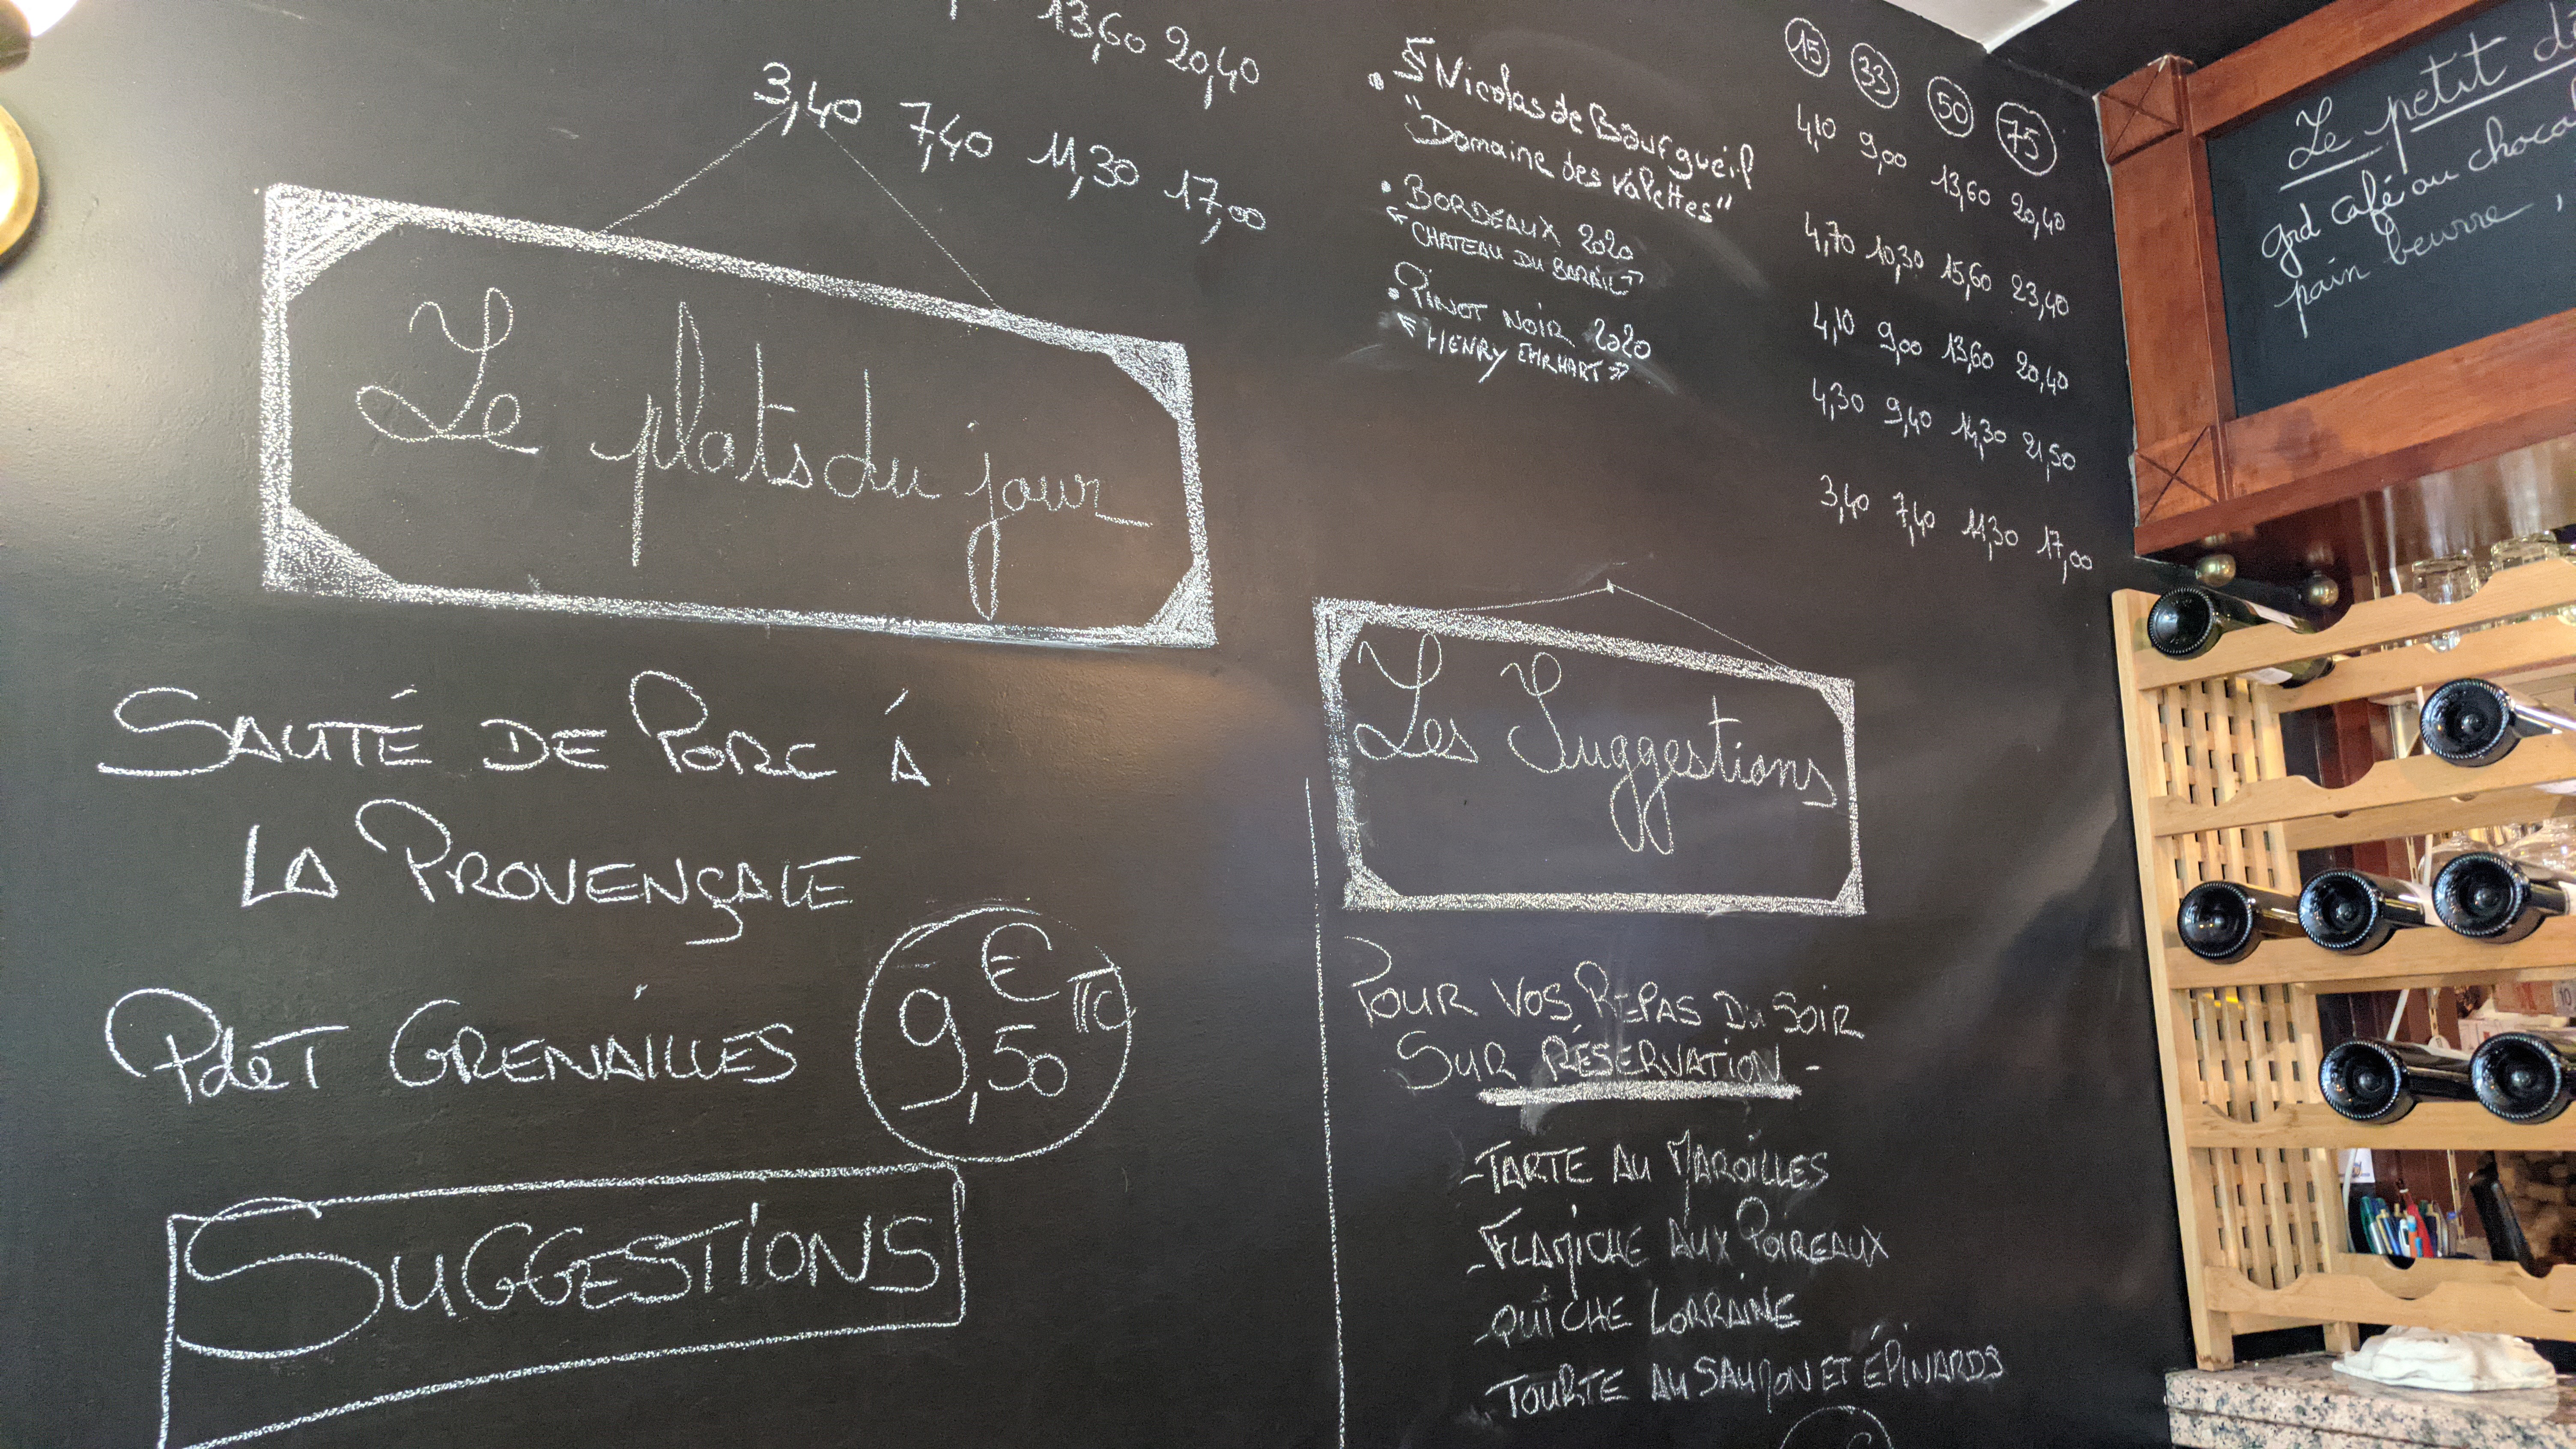 13,60 20,40
3,40 7,40 11,30 17,00
Le plats du jour
SAUTÉ DE PORC À
LA PROVENÇALE
PdeT GRENAILLES
9,50 € TTC
SUGGESTIONS
15 33 50 75
• St Nicolas de Bourgueil
"Domaine des Valettes"
• BORDEAUX 2020
« CHATEAU DU BARAIL »
• PINOT NOIR 2020
« HENRY EHRHART »
4,10 9,00 13,60 20,40
4,70 10,30 15,60 23,40
4,10 9,00 13,60 20,40
4,30 9,40 14,30 21,50
3,40 7,40 11,30 17,00
Les Suggestions
POUR VOS REPAS DU SOIR
SUR RÉSERVATION -
- TARTE AU MAROILLES
- FLAMICHE AUX POIREAUX
- QUICHE LORRAINE
- TOURTE AU SAUMON ET ÉPINARDS
€
Le petit
grd café ou
pain beurre,